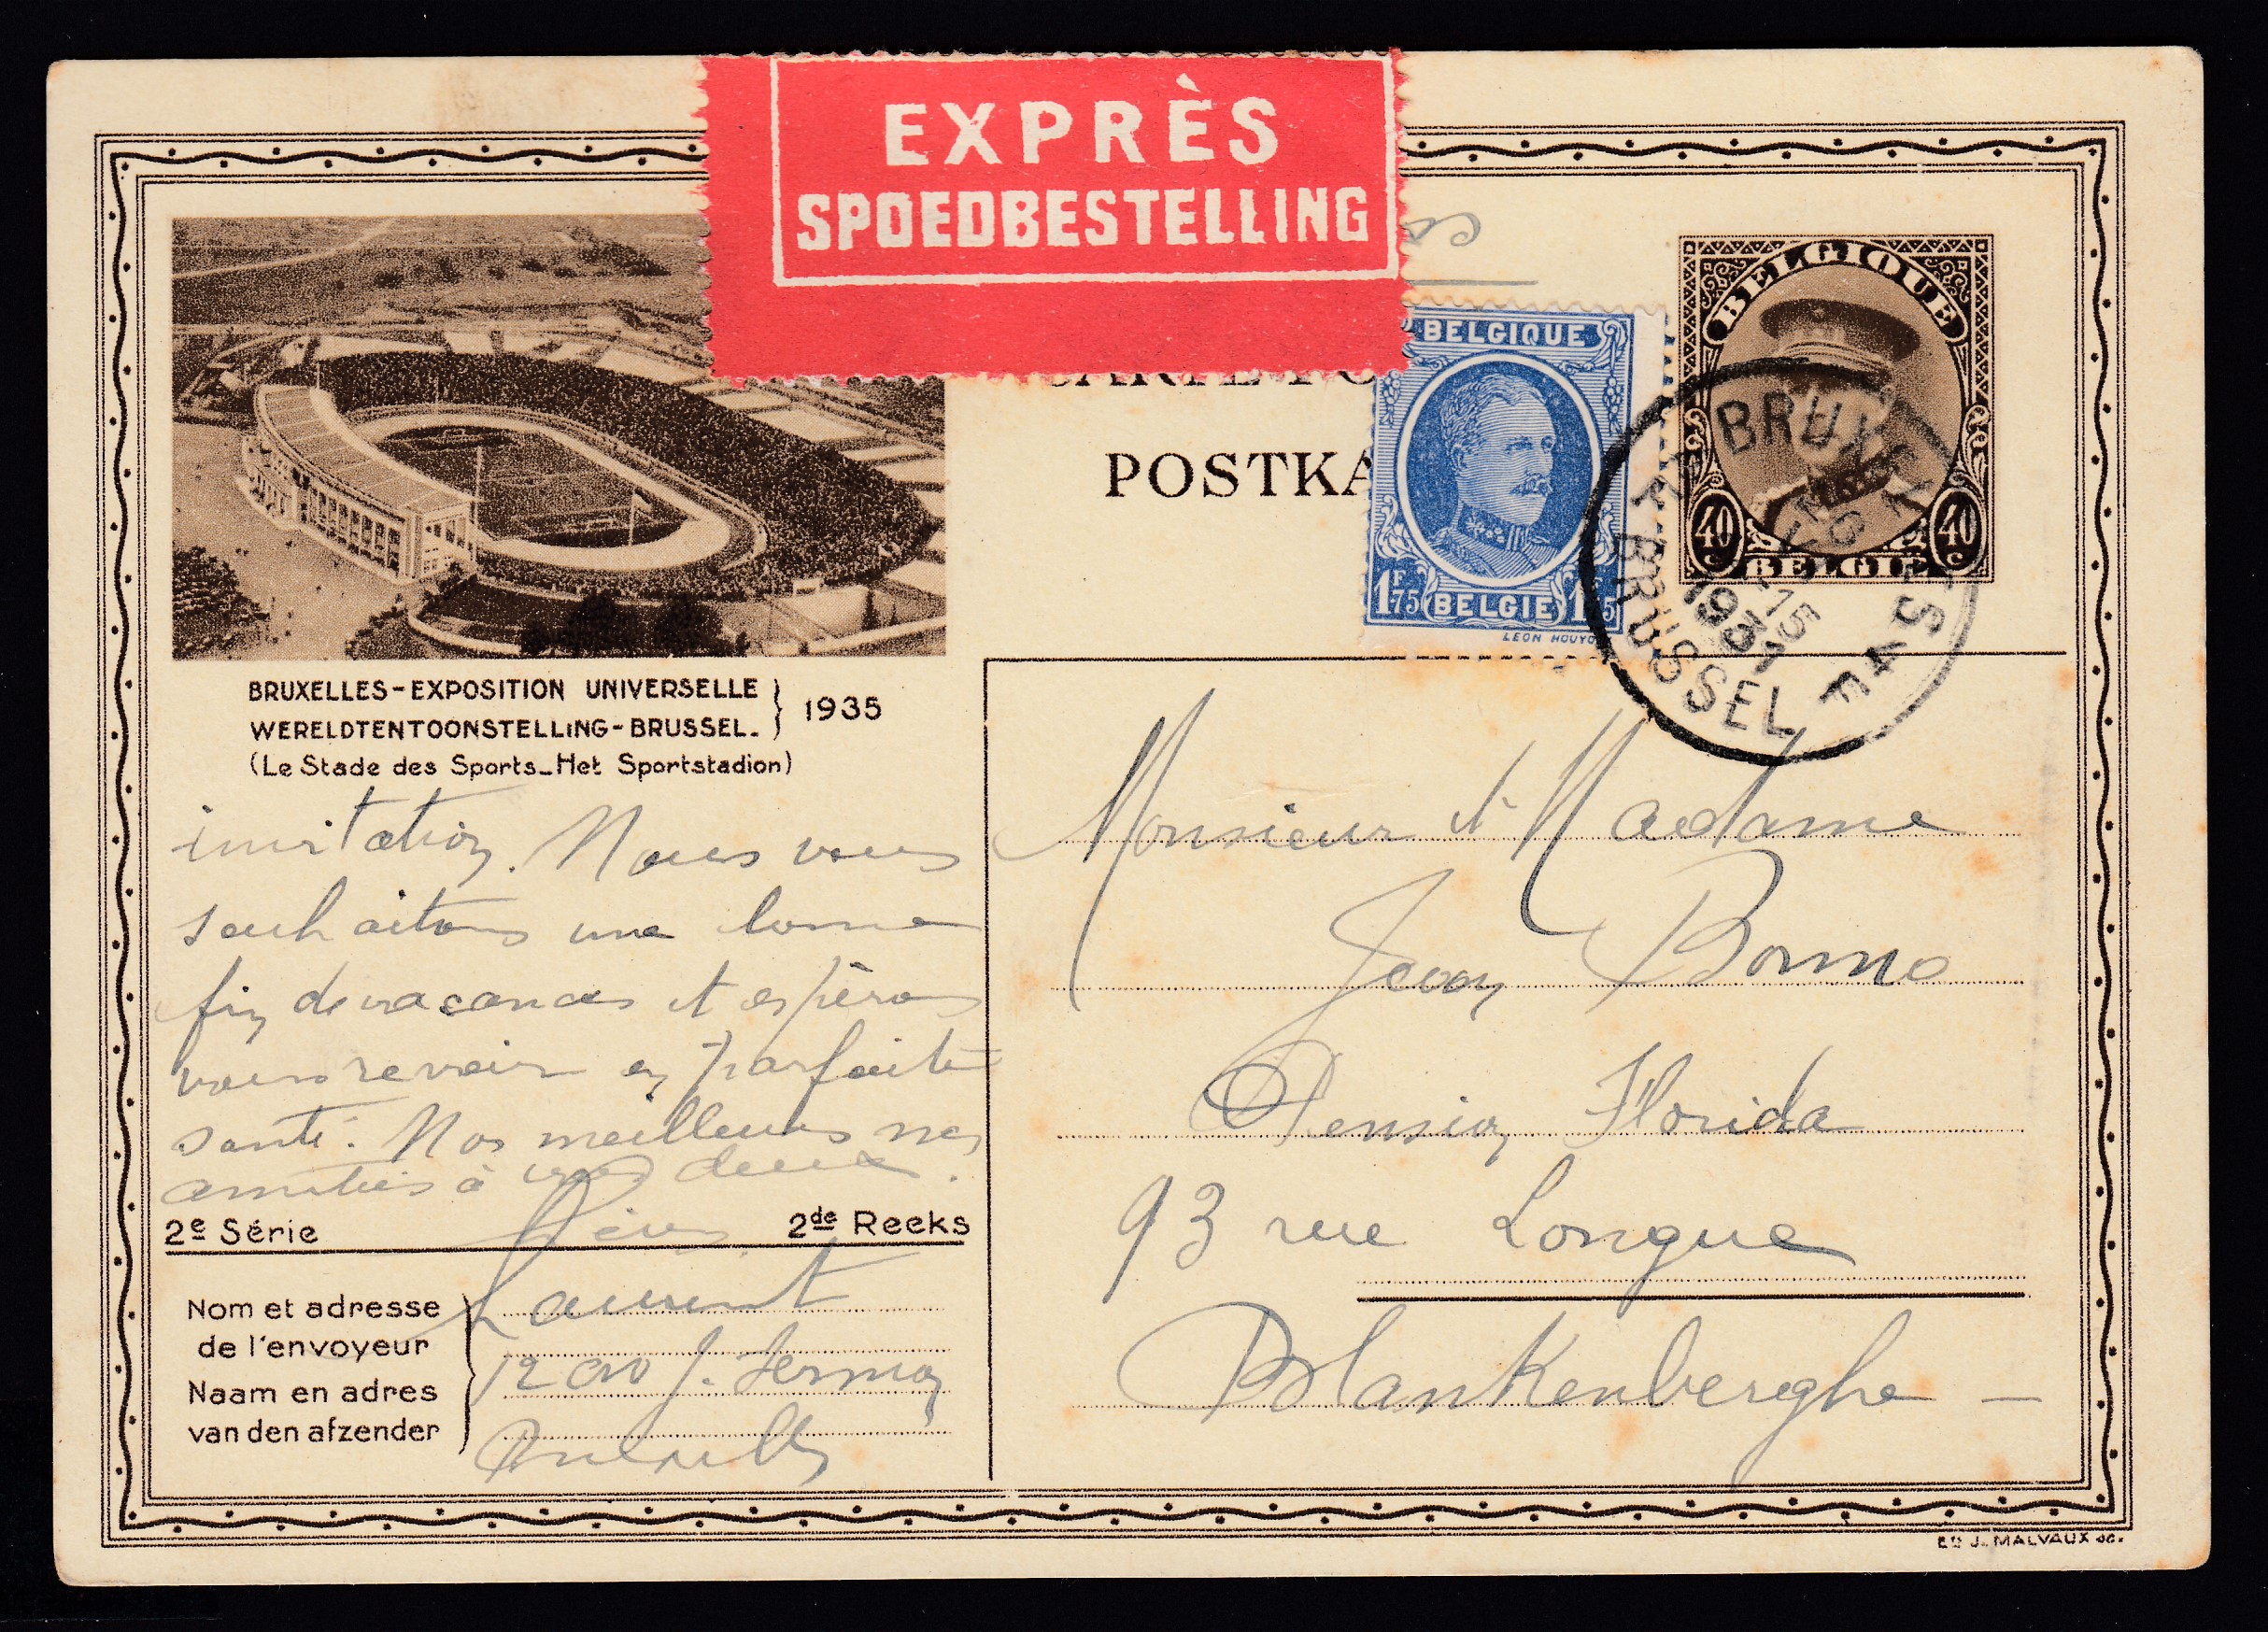 EXPRÈS
SPOEDBESTELLING
BELGIQUE
1F75 BELGIE
LEON HOUYOU
BELGIQUE
40c BELGIE 40c
POSTKA
BRUXELLES
1931
BRUSSEL
BRUXELLES-EXPOSITION UNIVERSELLE
WERELDTENTOONSTELLING-BRUSSEL.
1935
(Le Stade des Sports_Het Sportstadion)
invitation. Nous vous
souhaitons une bonne
fin de vacances et espérons
vous revoir en parfaite
santé. Nos meilleures
amitiés à vous deux.
2e Série
2de Reeks
Nom et adresse
de l'envoyeur
Naam en adres
van den afzender
Laurent
12 av J.
Monsieur et Madame
Jean
Pension Florida
93 rue Longue
Blankenberghe -
ED J. MALVAUX sc.